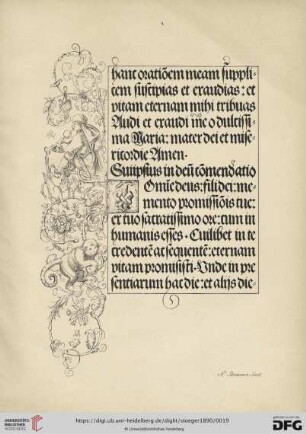 hanc oratiōem meam suppli-
cem suscipias et exaudias: et
vitam eternam mihi tribuas
Audi et exaudi me o dulcissi-
ma Maria: mater dei et mise-
ricordie Amen.
Suiipsius in deū cōmendatio
Domīe deus: fili dei: me-
mento promissiōis tue:
ex tuo sacratissimo ore: cum in
humanis esses. Cuilibet in te
credentē ac sequentē: eternam
vitam promisisti. Unde in pre
sentiarum hac die: et alijs die-
UNIVERSITÄTS-
BIBLIOTHEK
HEIDELBERG
https://digi.ub.uni-heidelberg.de/diglit/stoeger1890/0019
© Universitätsbibliothek Heidelberg
gefördert durch die
DFG